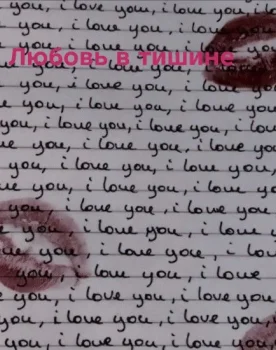 you, i love you, i love you, i love
you, i love you, i love you
Любовь в тишине
i love you, i love you, i love
you, i love you, i love you
i love you, i love you, i love
you, i love you, i love you,
you, i love you, i love you, i love you,
i love you, i love you, i love you
you, i love you, i love you,
love you, i love you, i love you
you, i love you, i love you
you, i love you, i love you
love you, i love you, i love
you, i love you, i love
i love you, i love you, i love
you, i love you, i love you
you, i love you, i love you,